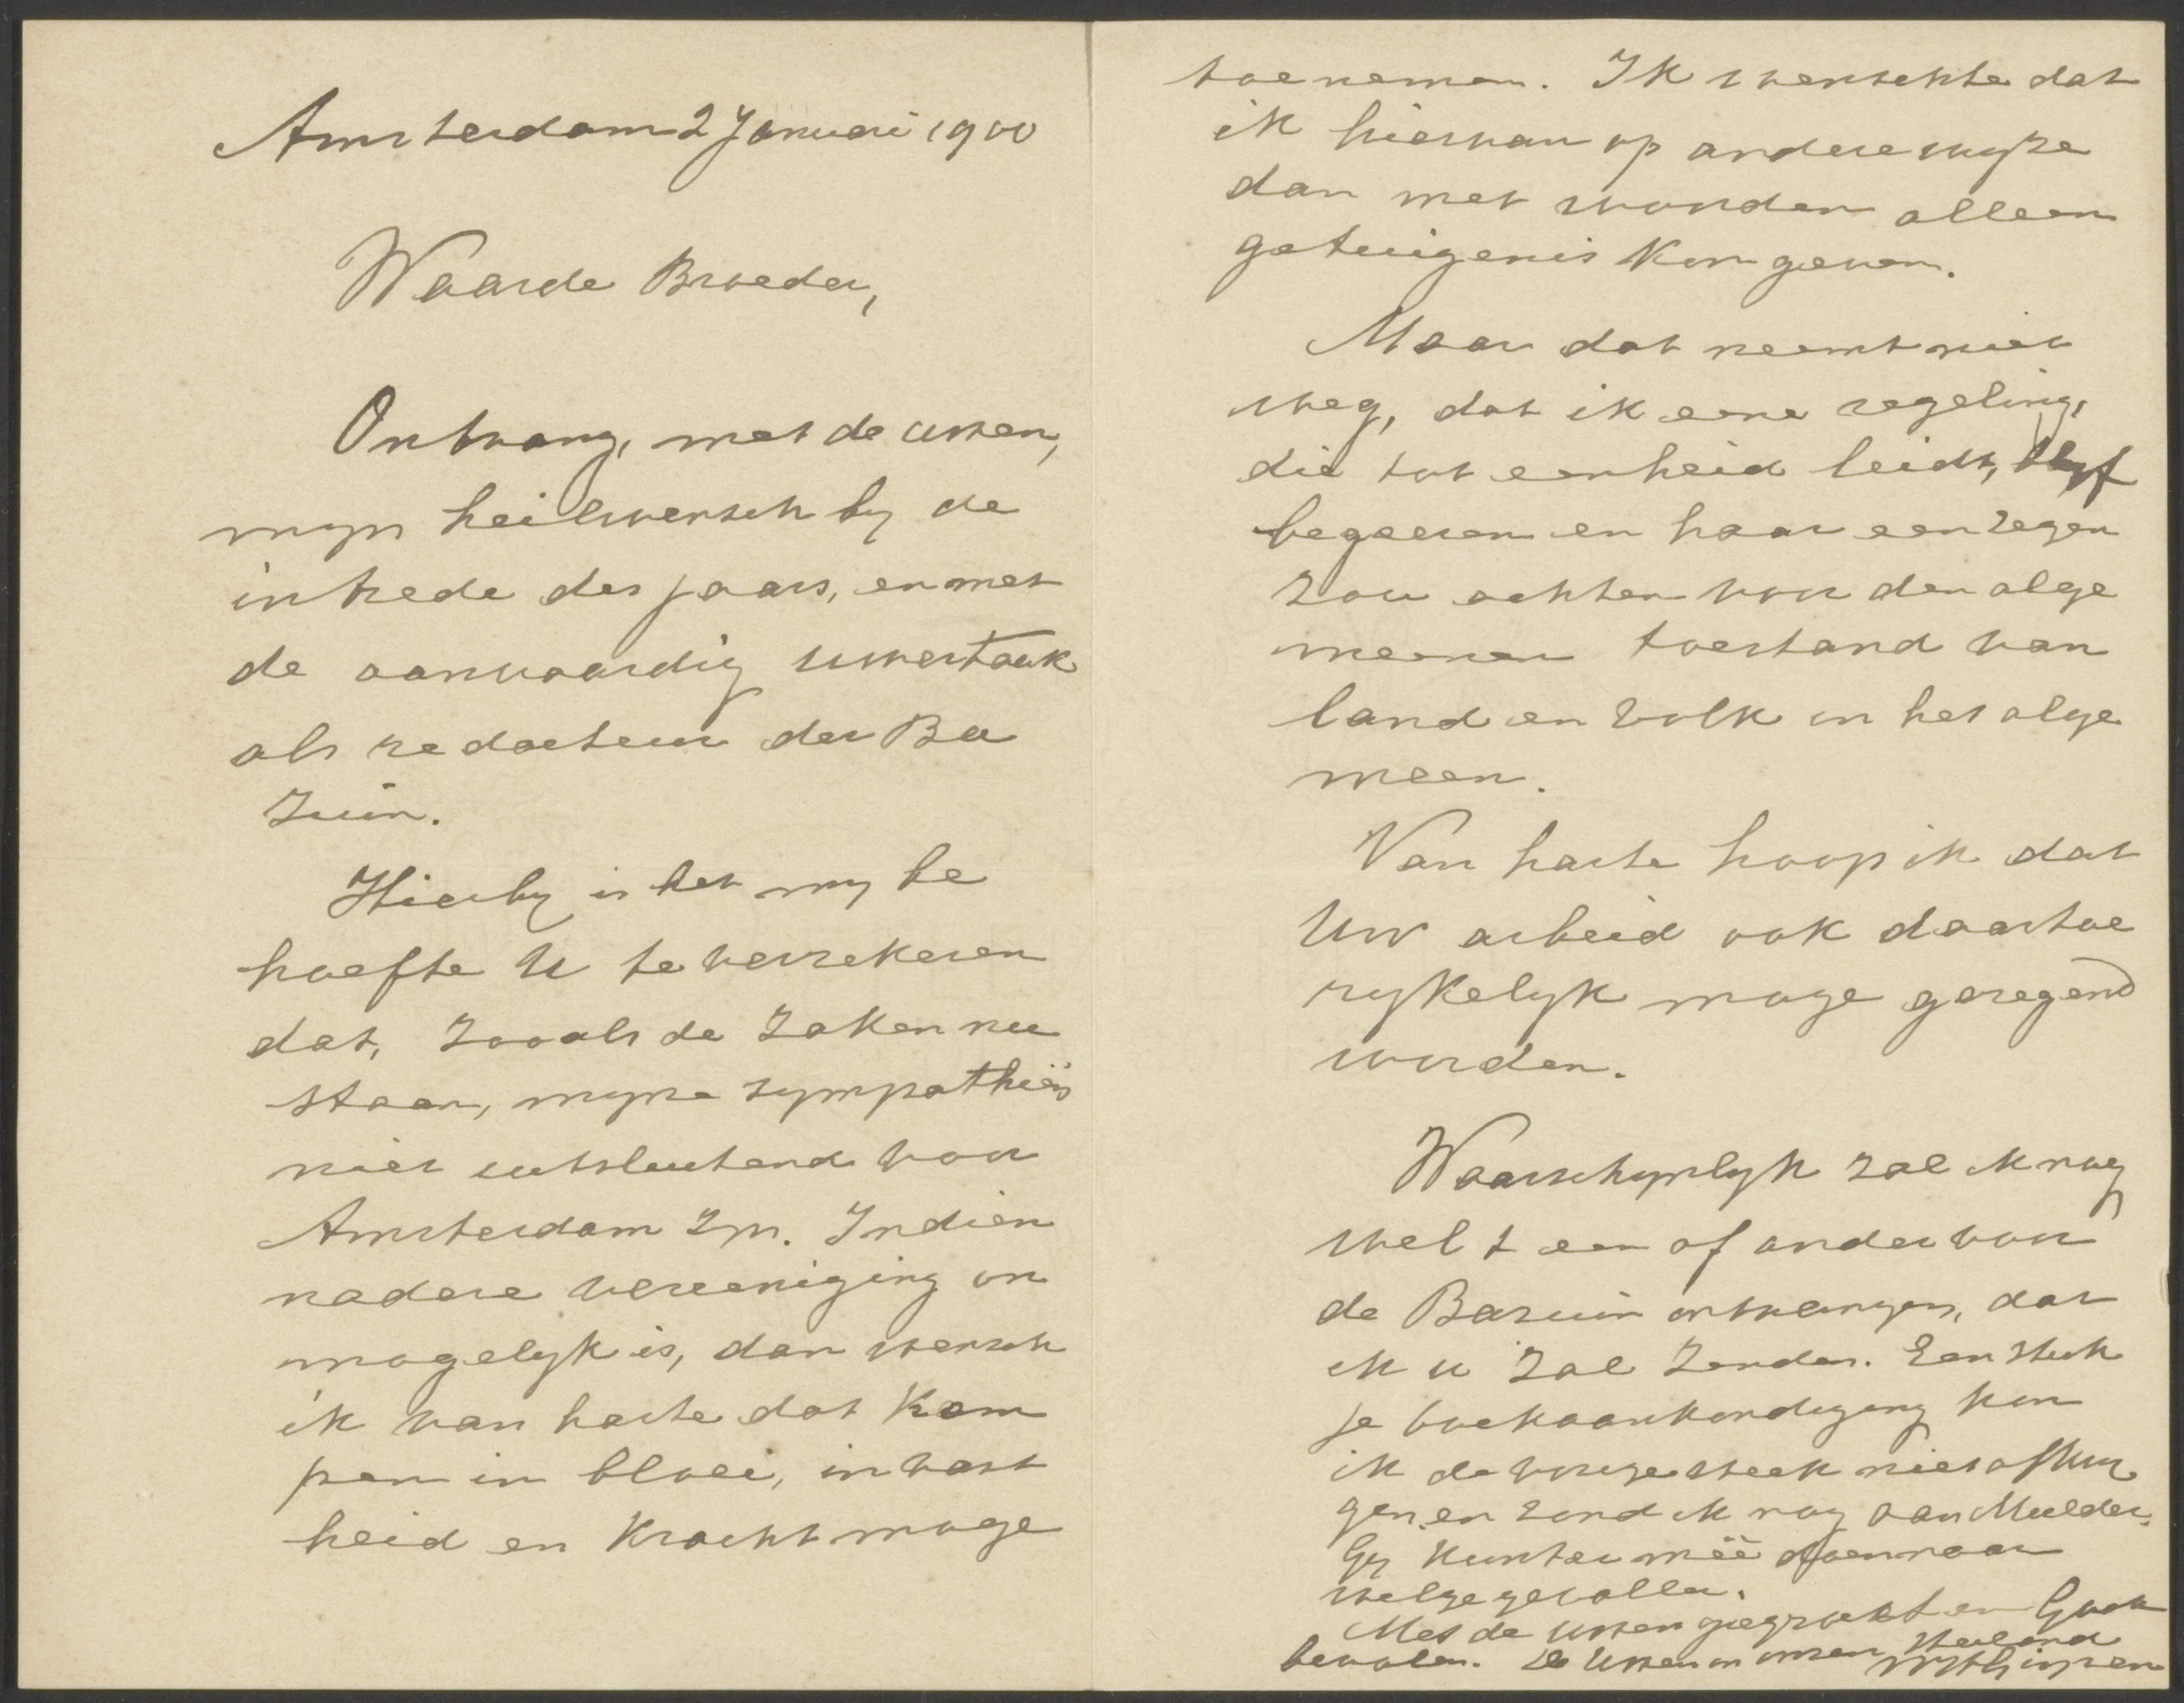 Amsterdam 2 Januari 1900
Waarde Broeder,
Ontvang, met de uwen,
mijn heilwensch bij de
intrede des jaars, en met
de aanvaardig uwer taak
als redacteur der Ba
zuin.
Hierbij is het mij be
hoefte U te verzekeren
dat, zooals de zaken nu
staan, mijne sympathiën
niet uitsluitend voor
Amsterdam zijn. Indien
nadere vereeniging on
mogelijk is, dan wensch
ik van harte dat Kam
pen in bloei, in vast
heid en kracht moge
toenemen. Ik wenschte dat
ik hiervan op andere wijze
dan met woorden alleen
getuigenis kon geven.
Maar dat neemt niet
weg, dat ik eene regeling,
die tot eenheid leidt, blijf
begeeren en haar een zegen
zou achten voor den alge
meenen toestand van
land en volk in het alge
meen.
Van harte hoop ik dat
Uw arbeid ook daartoe
rijkelijk moge gezegend
worden.
Waarschijnlijk zal ik nog
wel t een of ander voor
de Bazuin ontvangen, dat
ik u zal zenden. Een stuk
je boekaankondiging kon
ik de vorige week niet afkrij
gen, en zond ik nog aan Mulder.
Gij kunt er meê doen naar
welgevallen.
Met de uwen gegroet en Gode
bevolen. De Uwen in onzen Heiland